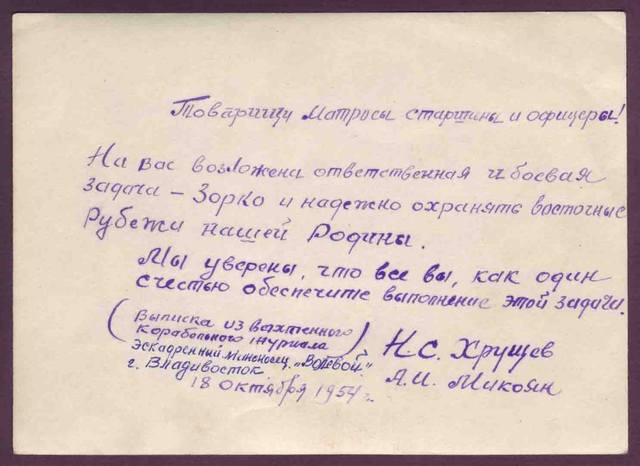 Товарищи матросы старшины и офицеры!
На вас возложена ответственная и боевая
задача – Зорко и надежно охранять восточные
Рубежи нашей Родины.
Мы уверены, что все вы, как один
счестью обеспечите выполнение этой задачи.
(Выписка из вахтенного
корабольного журнала
Эскадренный миноносец „Вотевой."
г. Владивосток
18 октября 1954 г.
Н.С. Хрущев
А.И. Микоян